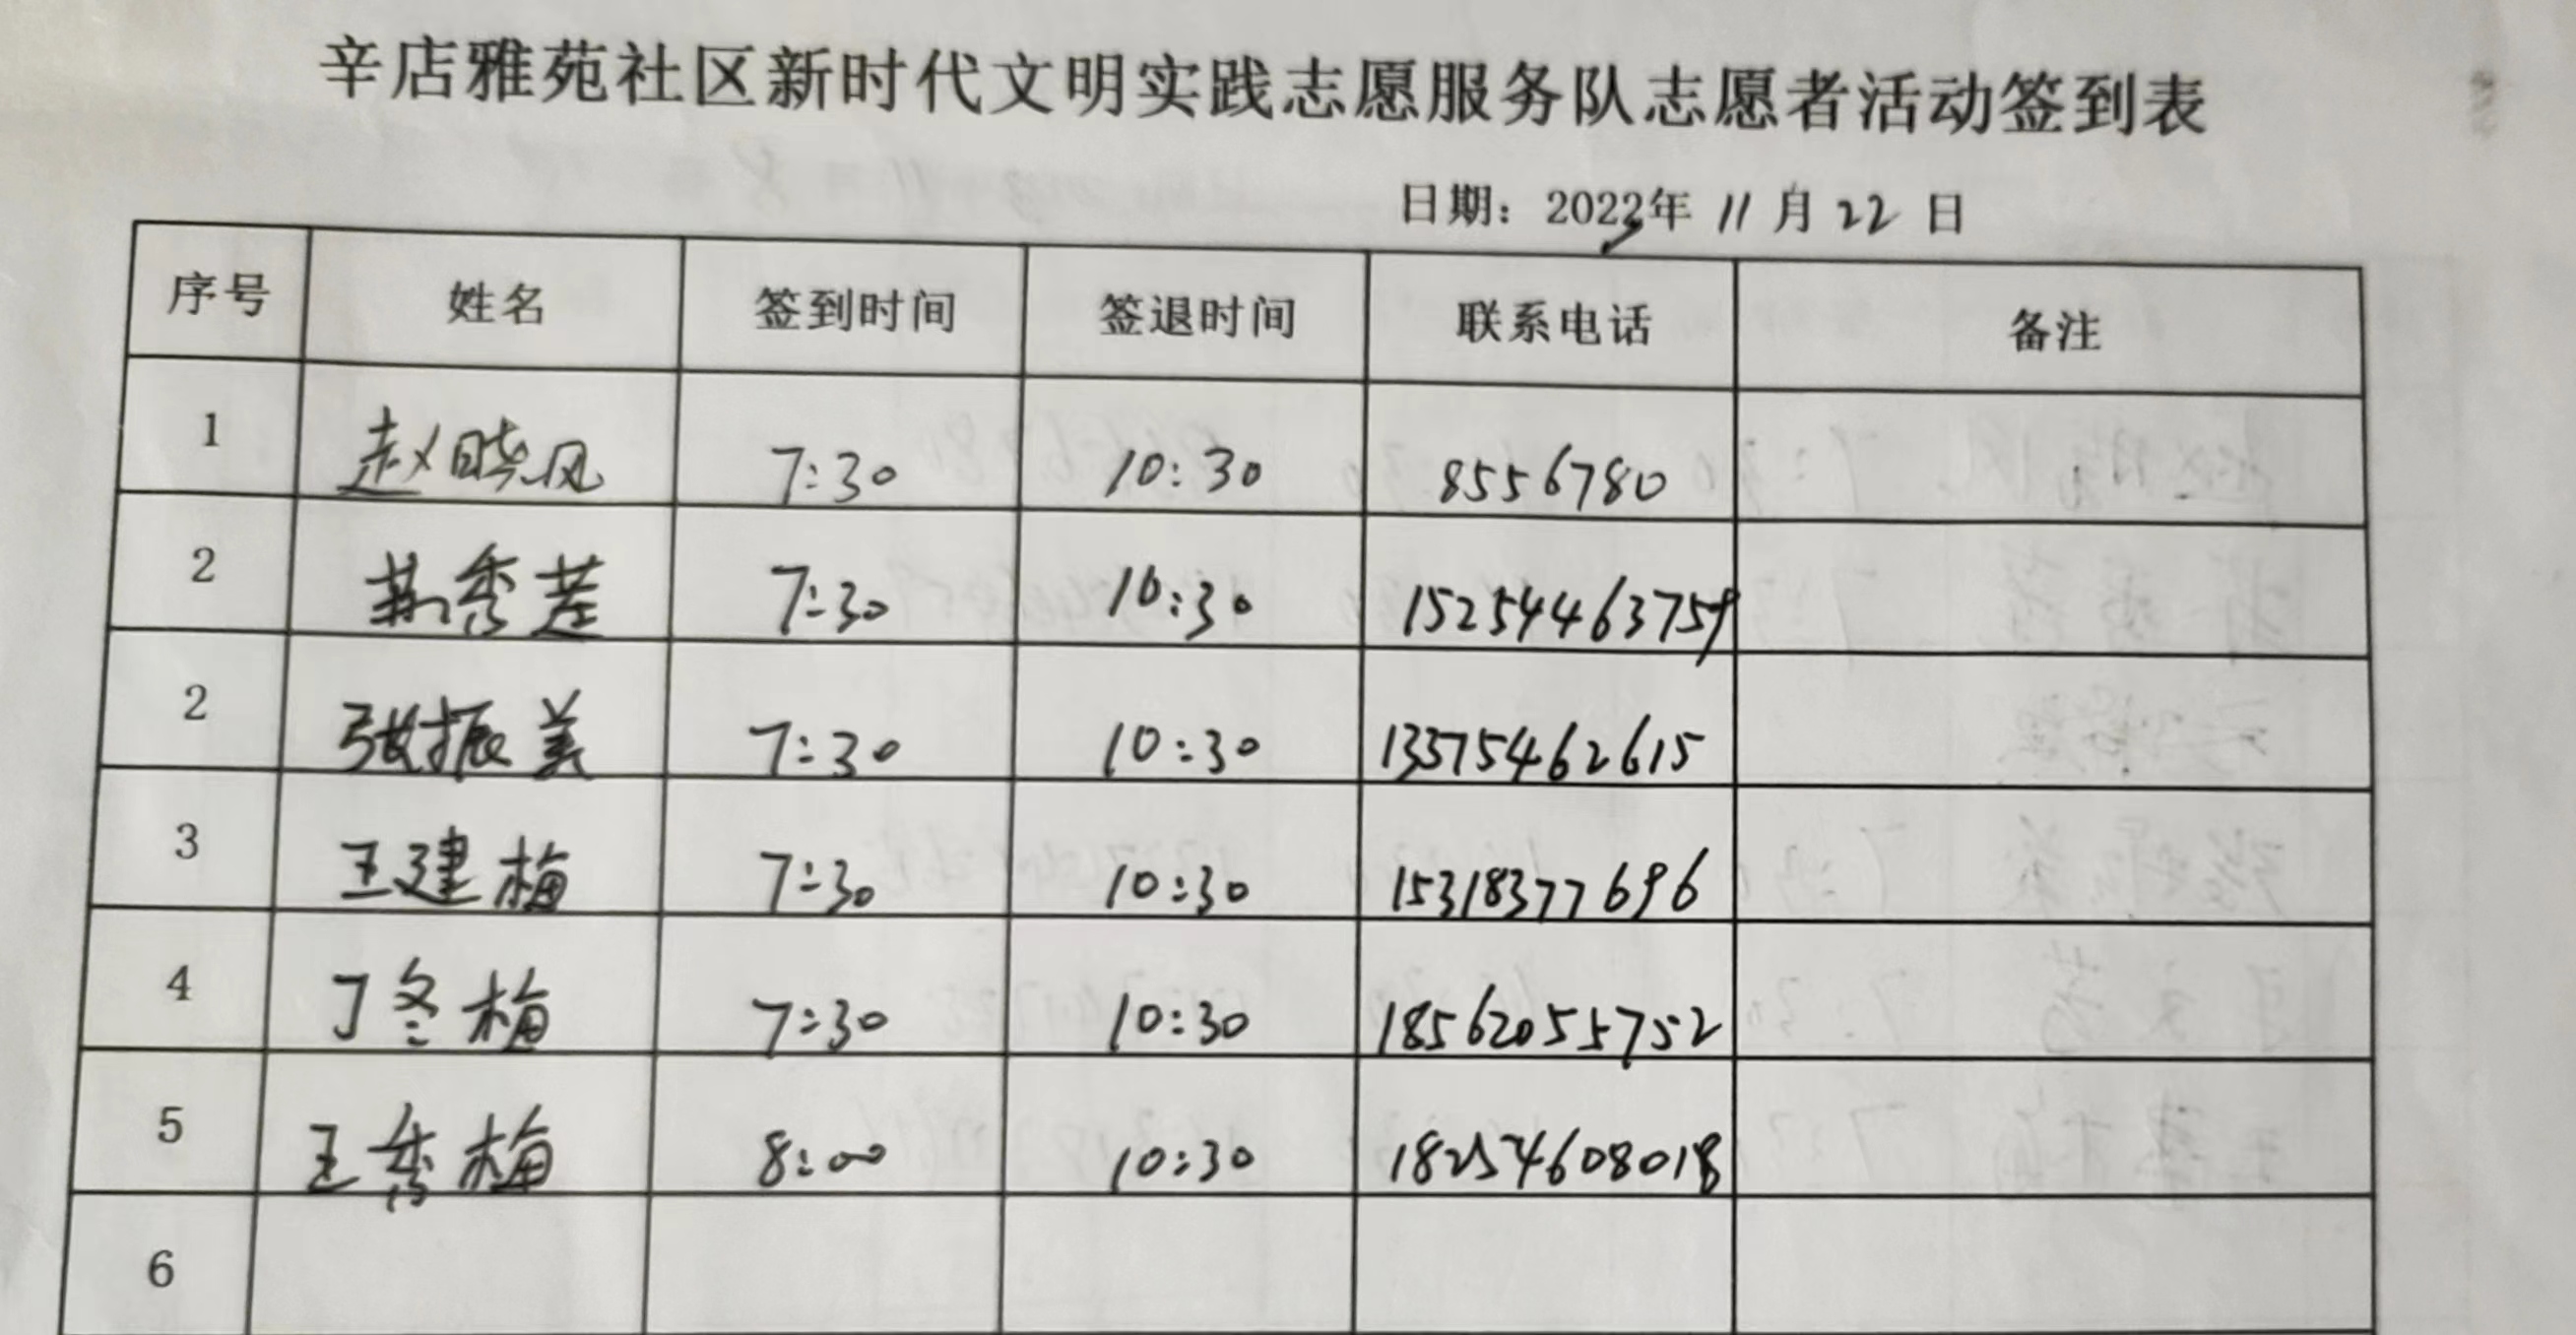 辛店雅苑社区新时代文明实践志愿服务队志愿者活动签到表
日期：2023年 11 月 22 日
序号 姓名 签到时间 签退时间 联系电话 备注
1 赵晓风 7:30 10:30 8556780
2 7:30 10:30 15254463759
2 张振美 7:30 10:30 13375462615
3 王建梅 7:30 10:30 15318377696
4 丁冬梅 7:30 10:30 18562055752
5 王秀梅 8:00 10:30 18254608018
6